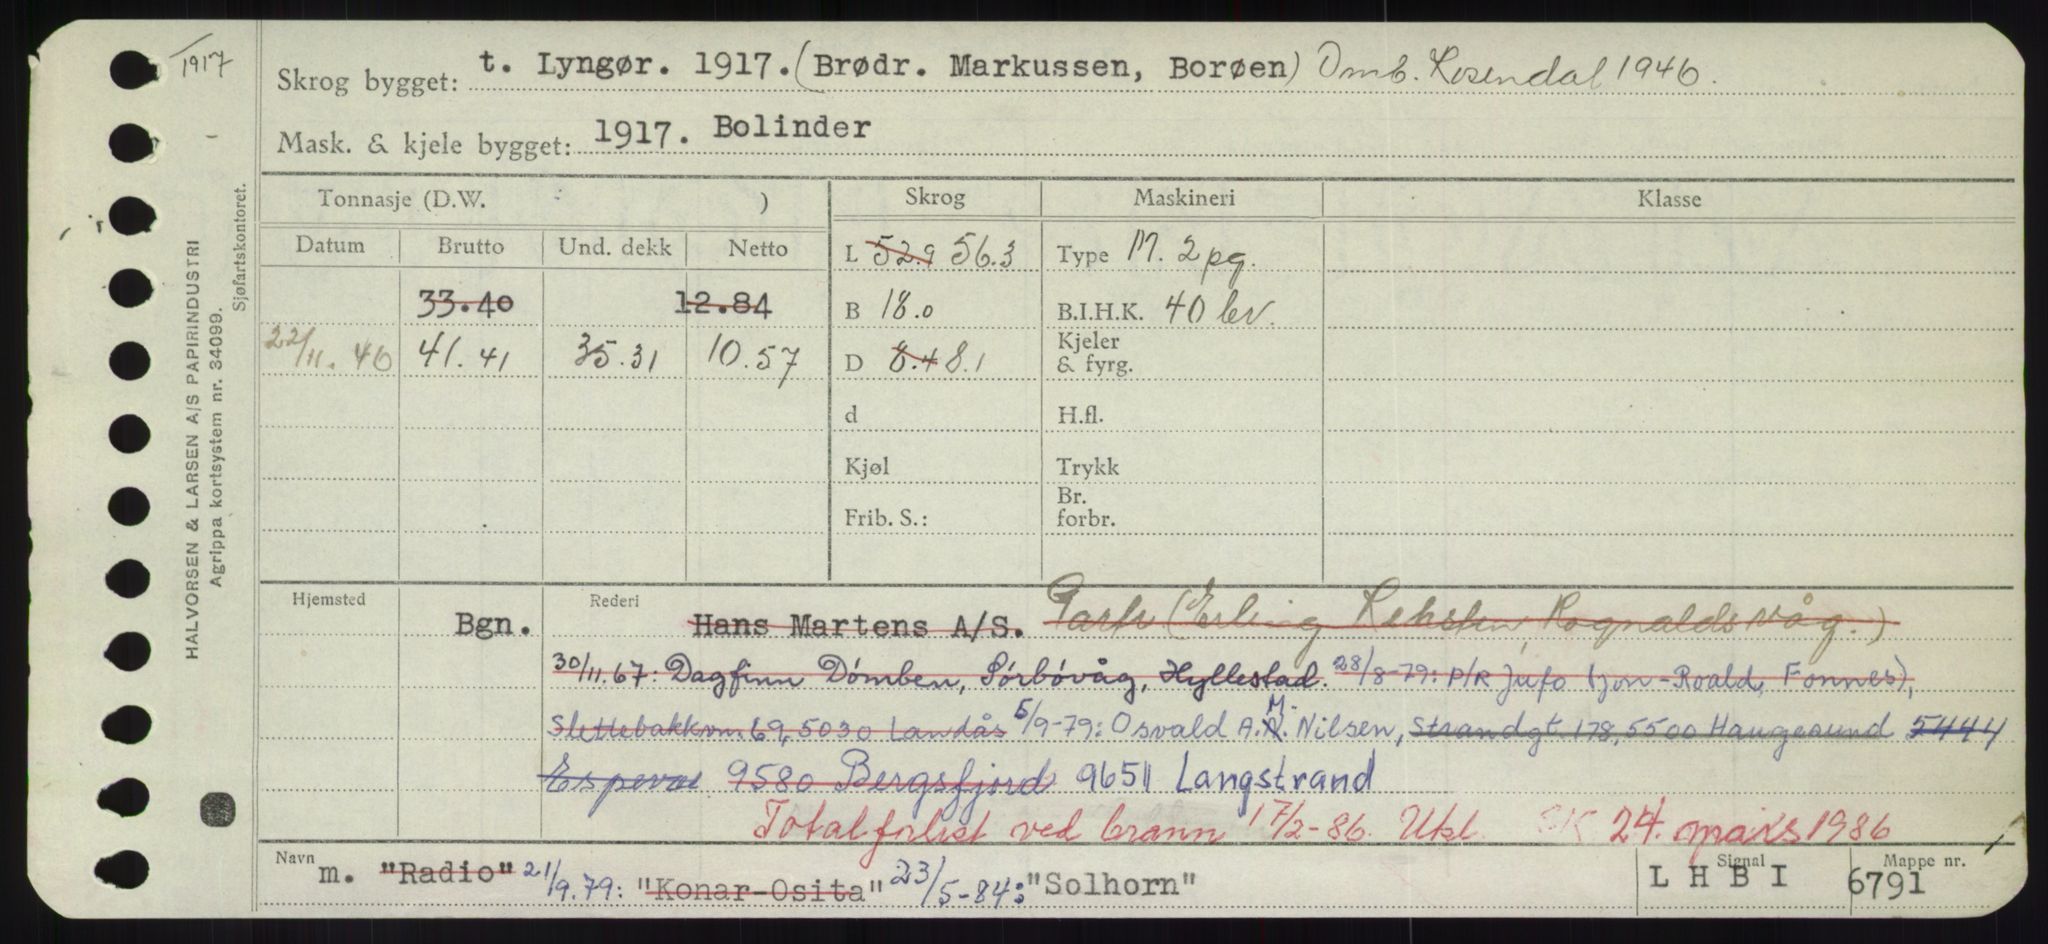 1917
Skrog bygget: t. Lyngør. 1917. (Brødr. Markussen, Borøen) Omb. Rosendal 1946.
Mask. & kjele bygget: 1917. Bolinder
HALVORSEN & LARSEN A/S PAPIRINDUSTRI
Agrippa kortsystem nr. 34099.
Sjøfartskontoret.
Tonnasje (D.W. ) Skrog Maskineri Klasse
Datum Brutto Und. dekk Netto L 52.9 56.3 Type M. 2 pg.
33.40 12.84 B 18.0 B.I.H.K. 40 bv.
22/11. 46 41.41 35.31 10.57 D 8.4 8.1 Kjeler & fyrg.
d H.fl.
Kjøl Trykk
Frib. S.: Br. forbr.
Hjemsted Bgn. Rederi Hans Martens A/S. Partr (Erling Reksten, Rognaldsvåg.)
30/11.67: Dagfinn Dømben, Sørbøvåg, Hyllestad. 28/8-79: P/R Jufo (Jon-Roald, Fonnes),
Slettebakkvn. 69, 5030 Landås 5/9-79: Osvald A. M. Nilsen, Strandgt. 178, 5500 Haugesund 5444
Espevær 9580 Bergsfjord 9651 Langstrand
Totalforlist ved brann 17/2-86. Utsl. SK 24. mars 1986
Navn m. "Radio" 21/9.79: "Konar-Osita" 23/5-84: "Solhorn" Signal L H B I Mappe nr. 6791